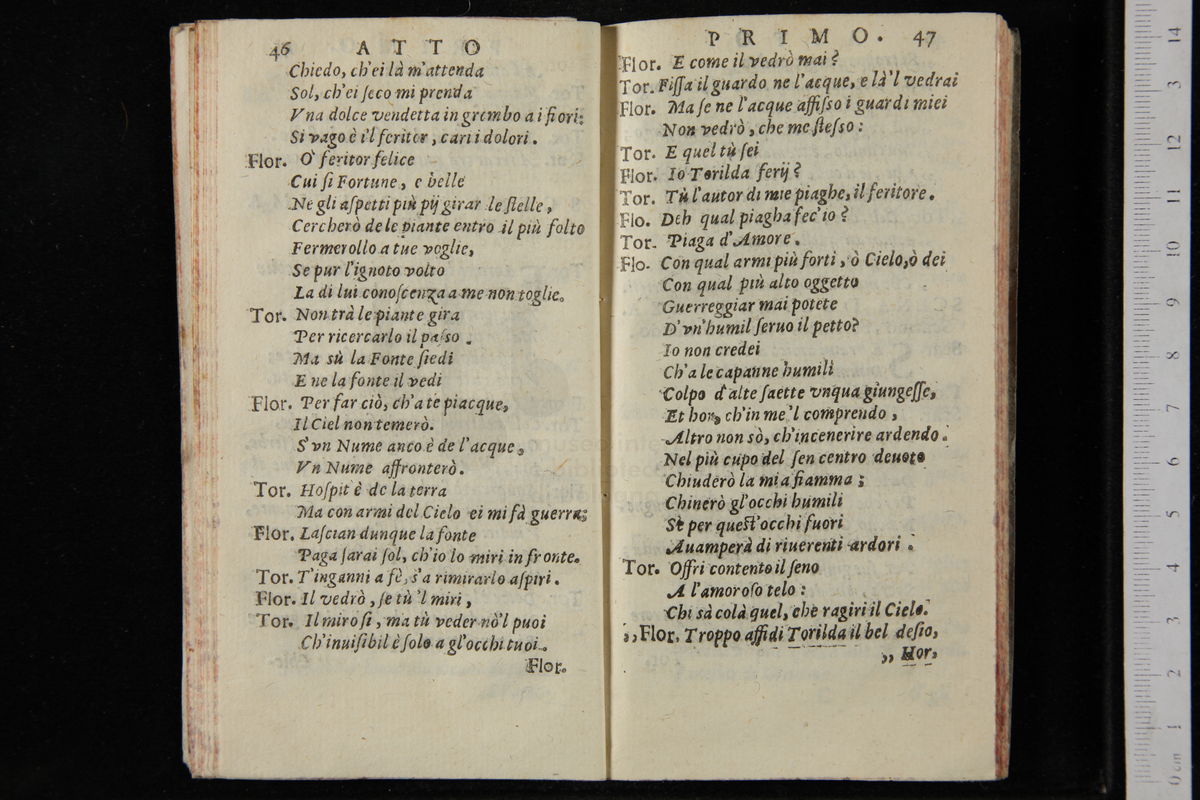 46 ATTO
Chiedo, ch'ei là m'attenda
Sol, ch'ei ſeco mi prenda
Vna dolce vendetta in grembo a i fiori;
Sì vago è i'l feritor, cari i dolori.
Flor. O feritor felice
Cui ſi Fortune, e belle
Ne gli aſpetti più pij girar le ſtelle,
Cercherò de le piante entro il più folto
Fermerollo a tue voglie,
Se pur l'ignoto volto
La di lui conoſcenza a me non toglie.
Tor. Non trà le piante gira
Per ricercarlo il paſso.
Ma sù la Fonte ſiedi
E ne la fonte il vedi
Flor. Per far ciò, ch'a te piacque,
Il Ciel non temerò.
S'vn Nume anco è de l'acque,
Vn Nume affronterò.
Tor. Hoſpit'è de la terra
Ma con armi del Cielo ei mi fà guerra;
Flor. Laſcian dunque la fonte
Paga ſarai ſol, ch'io lo miri in fronte.
Tor. T'inganni a fè, s'a rimirarlo aſpiri.
Flor. Il vedrò, ſe tù 'l miri,
Tor. Il miro ſi, ma tù veder nò'l puoi
Ch'inuiſibil è ſolo a gl'occhi tuoi.
Flor.
PRIMO. 47
Flor. E come il vedrò mai?
Tor. Fiſſa il guardo ne l'acque, e là'l vedrai
Flor. Ma ſe ne l'acque affiſso i guardi miei
Non vedrò, che me ſteſso:
Tor. E quel tù ſei
Flor. Io Torilda ferij?
Tor. Tù l'autor di mie piaghe, il feritore.
Flo. Deh qual piagha fec'io?
Tor. Piaga d'Amore.
Flo. Con qual armi più forti, ò Cielo, ò dei
Con qual più alto oggetto
Guerreggiar mai potete
D'vn'humil ſeruo il petto?
Io non credei
Ch'a le capanne humili
Colpo d'alte ſaette vnqua giungeſſe,
Et hor, ch'in me'l comprendo,
Altro non sò, ch'incenerire ardendo.
Nel più cupo del ſen centro deuoto
Chiuderò la mia fiamma;
Chinerò gl'occhi humili
Se per queſt'occhi fuori
Auamperà di riuerenti ardori.
Tor. Offri contento il ſeno
A l'amoroſo telo:
Chi sà colà quel, che ragiri il Cielo.
,, Flor. Troppo affidi Torilda il bel deſio,
,, Hor,